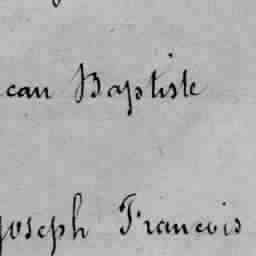 ean Baptiste
Joseph Francois